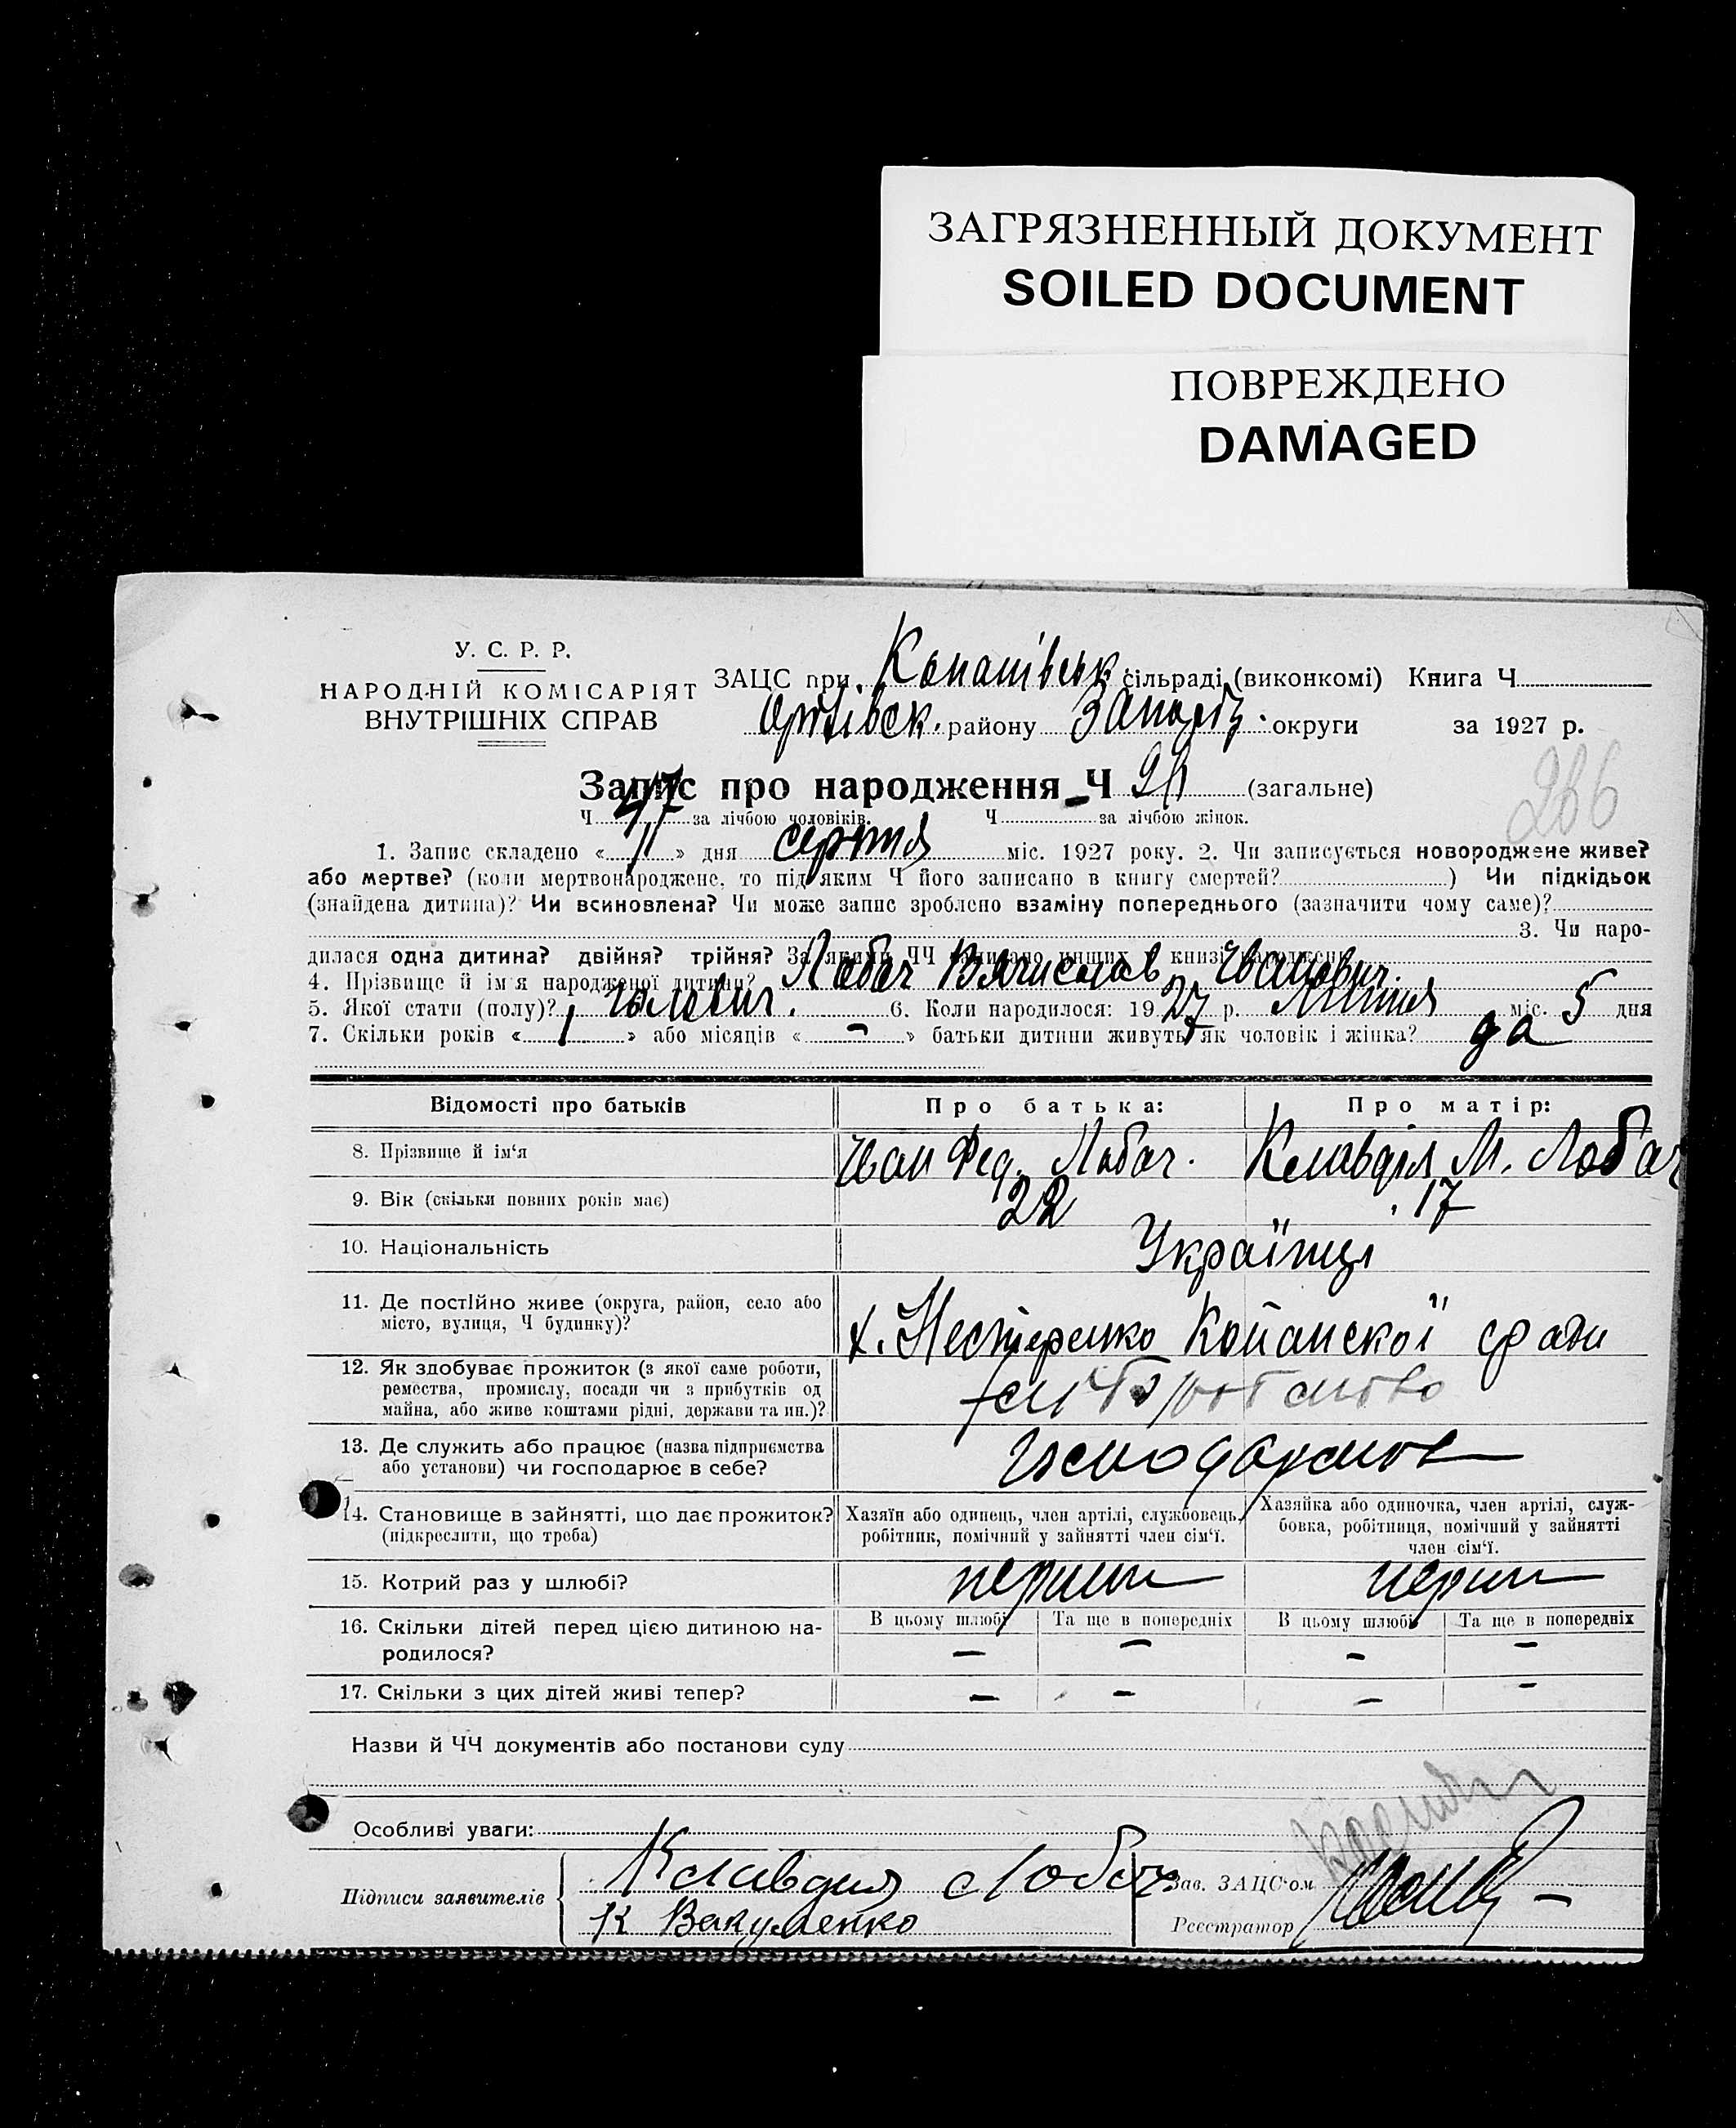 ЗАГРЯЗНЕННЫЙ ДОКУМЕНТ
SOILED DOCUMENT
ПОВРЕЖДЕНО
DAMAGED
У. С. Р. Р.
НАРОДНІЙ КОМІСАРІЯТ
ВНУТРІШНІХ СПРАВ
ЗАЦС при Копанівськ сільраді (виконкомі) Книга Ч
району Запоріз. округи за 1927 р.
Запис про народження Ч (загальне)
266
Ч 47 за лічбою чоловіків. Ч за лічбою жінок.
1. Запис складено « 11 » дня серпня міс. 1927 року. 2. Чи записується новороджене живе?
або мертве? (коли мертвонароджене, то під яким Ч його записано в книгу смертей? ) Чи підкідьок
(знайдена дитина)? Чи всиновлена? Чи може запис зроблено взаміну попереднього (зазначити чому саме)?
3. Чи наро-
дилася одна дитина? двійня? трійня? За якими ЧЧ записано инших у книзі народжень
4. Прізвище й ім'я народженої дитини? Лобач Вячислав Іванович.
5. Якої стати (полу)? чоловіч. 6. Коли народилося: 1927 р. Липня міс. 5 дня
7. Скільки років « 1 » або місяців « – » батьки дитини живуть як чоловік і жінка? да
Відомості про батьків Про батька: Про матір:
8. Прізвище й ім'я Іван Фед. Лобач. Клавдія М. Лобач
9. Вік (скільки повних років має) 22 17
10. Національність Українці
11. Де постійно живе (округа, район, село або
місто, вулиця, Ч будинку)? х. Нестеренко Копанскої с/ради
12. Як здобуває прожиток (з якої саме роботи,
ремества, промислу, посади чи з прибутків од
майна, або живе коштами рідні, держави та ин.)?
13. Де служить або працює (назва підприємства
або установи) чи господарює в себе?
14. Становище в зайнятті, що дає прожиток?
(підкреслити, що треба)
Хазяїн або одинець, член артілі, службовець,
робітник, помічний у зайнятті член сім'ї.
Хазяйка або одиночка, член артілі, служ-
бовка, робітниця, помічний у зайнятті
член сім'ї.
15. Котрий раз у шлюбі?
В цьому шлюбі Та ще в попередніх В цьому шлюбі Та ще в попередніх
16. Скільки дітей перед цією дитиною на-
родилося? – – – –
17. Скільки з цих дітей живі тепер? – – – –
Назви й ЧЧ документів або постанови суду
Особливі уваги:
Підписи заявителів Клавдия Лобач
К Вакуленко
Зав. ЗАЦС'ом
Реєстратор